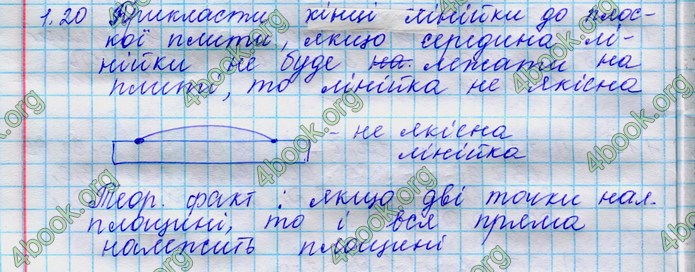 1.20 Прикласти кінці лінійки до плос-
кої плити, якщо середина лі-
нійки не буде на лежати на
плиті, то лінійка не якісна
- не якісна
лінійка
Теор. факт: якщо дві точки нал.
площині, то і вся пряма
належить площині
4book.org